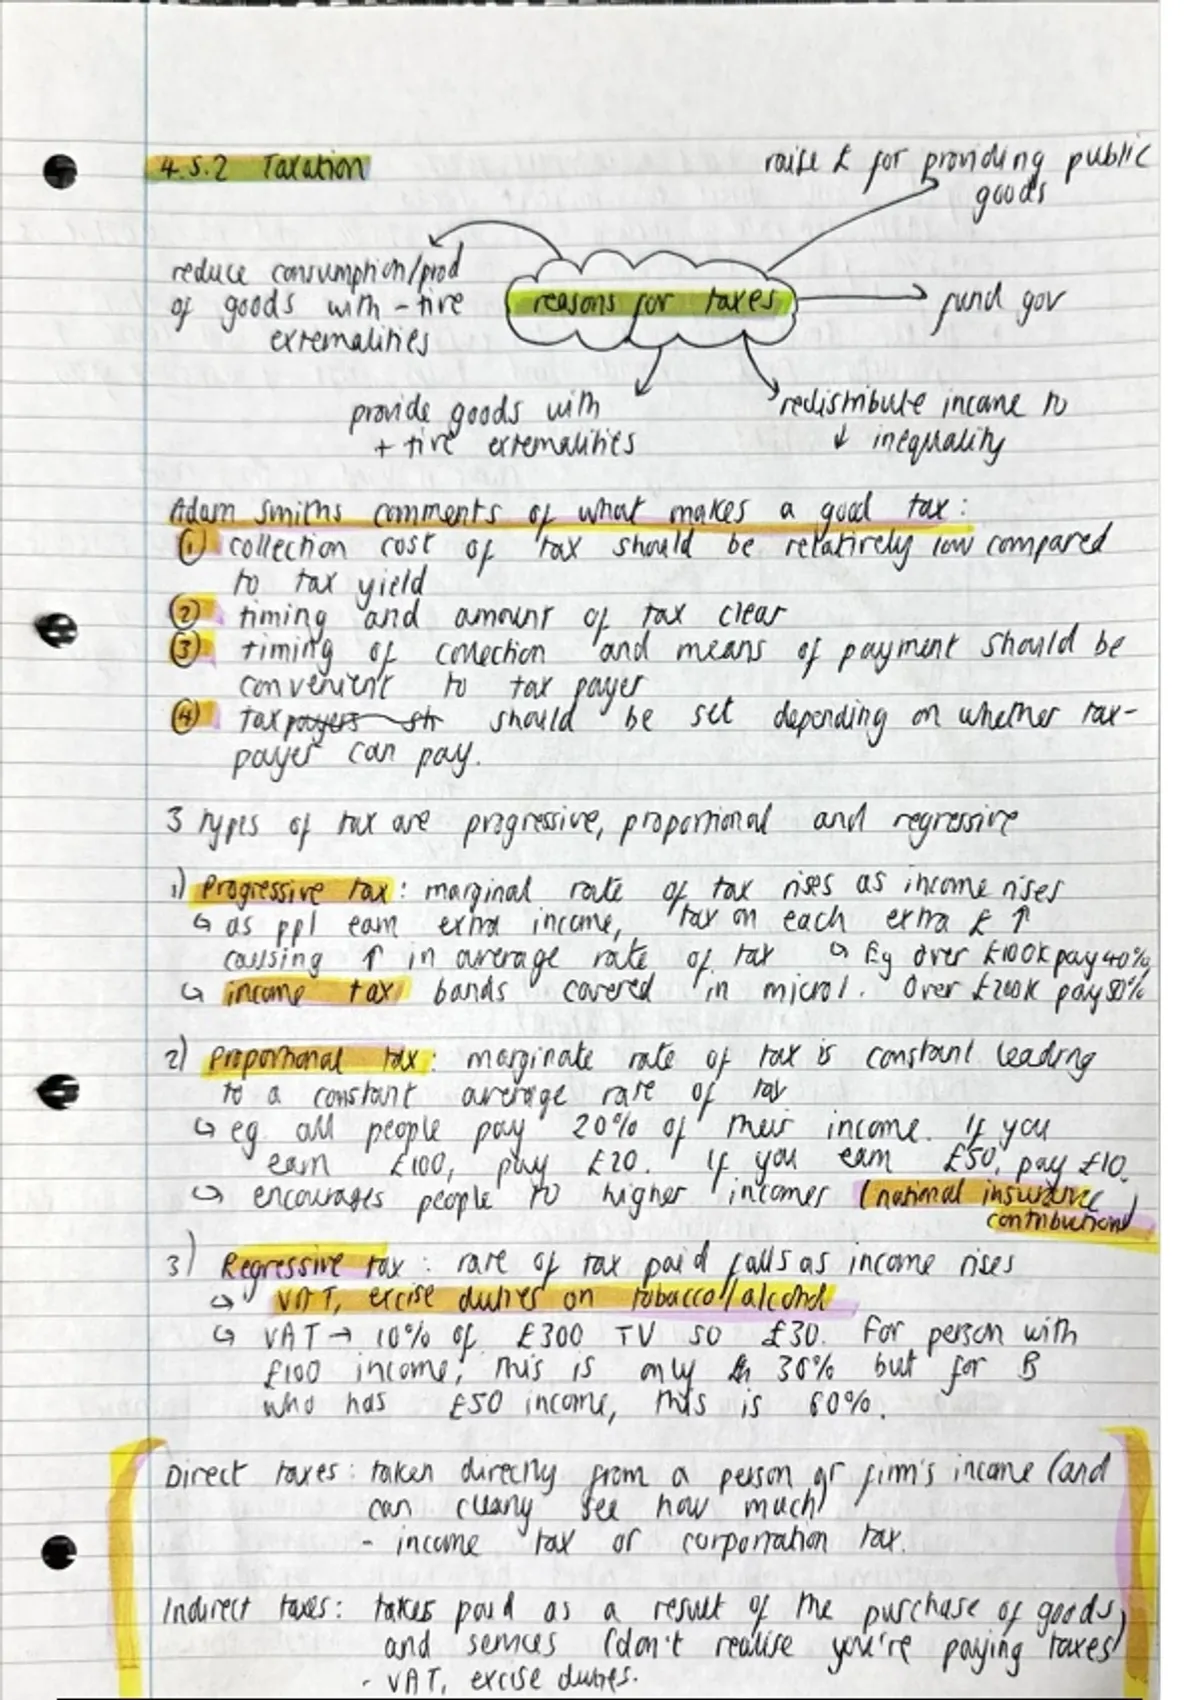 4.5.2 Taxation
raise £ for providing public
goods
reduce consumption/prod
of goods with -tive
externalities
reasons for taxes
fund gov
provide goods with
+ tive externalities
redistribute income to
↓ inequality
Adam Smiths comments of what makes a good tax:
① collection cost of tax should be relatively low compared
to tax yield
② timing and amount of tax clear
③ timing of collection and means of payment should be
convenient to tax payer
④ tax payers sh should be set depending on whether tax-
payer can pay.
3 types of tax are progressive, proportional and regressive
1) Progressive tax: marginal rate of tax rises as income rises
↳ as ppl earn extra income, tax on each extra £ ↑
causing ↑ in average rate of tax ↳ Eg Over £100K pay 40%,
↳ income tax bands covered in micro 1. Over £200K pay 50%
2) Proportional tax: marginate rate of tax is constant leading
to a constant average rate of tax
↳ eg. all people pay 20% of their income. If you
earn £100, pay £20. If you earn £50, pay £10.
↳ encourages people to higher incomes (national insurance
contributions)
3) Regressive tax: rate of tax paid falls as income rises
↳ VAT, excise duties on tobacco/alcohol
↳ VAT → 10% of £300 TV so £30. For person with
£100 income, this is only 30% but for B
who has £50 income, this is 60%.
Direct taxes: taken directly from a person or firm's income (and
can cleary see how much)
- income tax or corporation tax.
Indirect taxes: takes paid as a result of the purchase of goods
and services (don't realise you're paying taxes)
- VAT, excise duties.